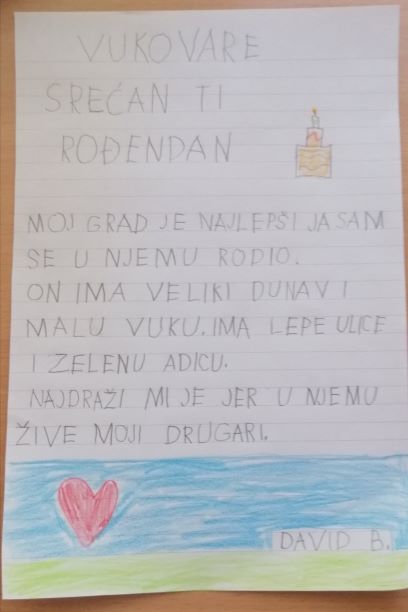 VUKOVARE
SREĆAN TI
ROĐENDAN
MOJ GRAD JE NAJLEPŠI JA SAM
SE U NJEMU RODIO.
ON IMA VELIKI DUNAV I
MALU VUKU. IMA LEPE ULICE
I ZELENU ADICU.
NAJDRAŽI MI JE JER U NJEMU
ŽIVE MOJI DRUGARI.
DAVID B.